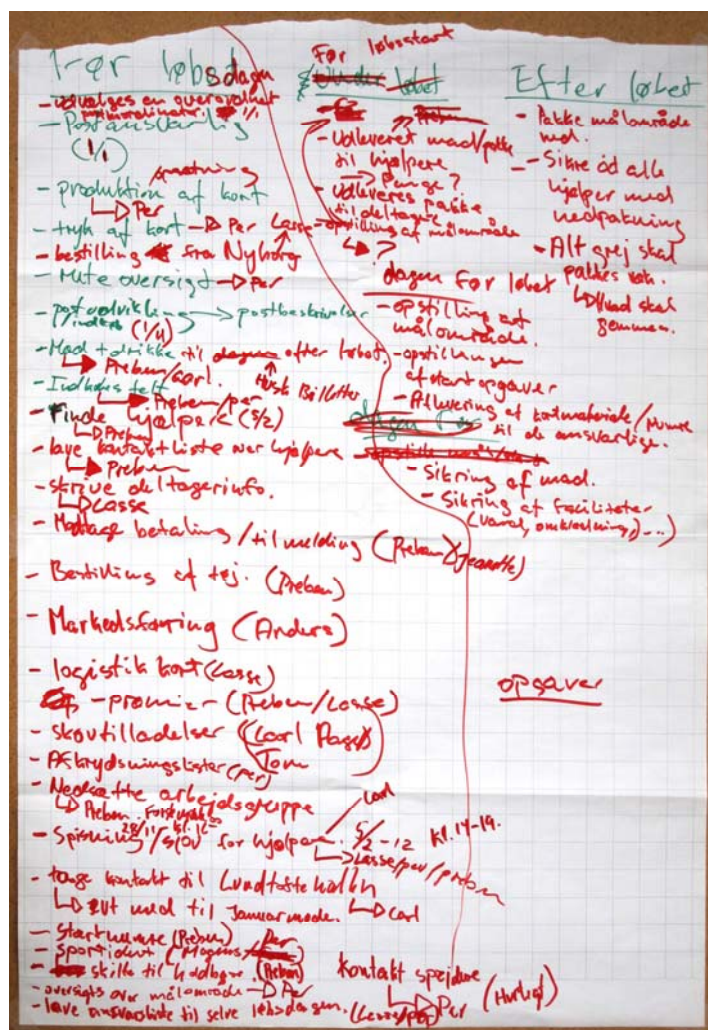 Før løbsdagen
- udvælges en
- Postansvarlig
(1/1)
- produktion af kort
Per
- tryk af kort - Per Lasse
- bestilling fra Nyborg
- Rute oversigt - Per
- postbeskrivelser
(1/4)
- Mad + drikke til dagen efter løbet.
Preben/Carl.
Husk Billetter
telt
Preben/per
- Finde hjælpere (5/2)
Preben
- lave kontaktliste over hjælpere
Preben
- skrive deltagerinfo.
Lasse
- Modtage betaling/tilmelding (Preben) (Jeanette)
- Bestilling af tøj. (Preben)
- Markedsføring (Anders)
- logistik kort (Lasse)
- præmier (Preben/Lasse)
- skovtilladelser (Carl
Tom
- Afkrydsningslister (per)
- Nedsætte arbejdsgruppe
Preben.
28/11 kl.
- Spisning/sjov for hjælpere. 5/2-12 Kl. 14-19.
Carl
Lasse/per/preben
- tage kontakt til
med til Januarmøde. Carl
- startnumre (Preben) Per
- sportident (Mogens/
- skilte til (Preben)
- oversigt over målområde - Per
- lave ansvarsliste til selve løbsdagen. (Lasse/per)
Før løbsstart
Under løbet
- Udleveret mad/pakke
til hjælpere
Penge?
- udleveres pakke
til deltagere
- opstilling af målområde
?
dagen før løbet
- opstilling af
målområde.
- opstillingen
af start opgaver
- Aflevering af kortmateriale/Numre
til de ansvarlige.
dagen før
- Sikring af mad.
- Sikring af faciliteter
(Vand, omklædning, ...)
Efter løbet
- Pakke målområde
ned.
- Sikre at alle
hjælper med
nedpakning
- Alt grej skal
pakkes væk.
Hvad skal
gemmes.
opgaver
Kontakt spejdere
Per (Hurtigt)